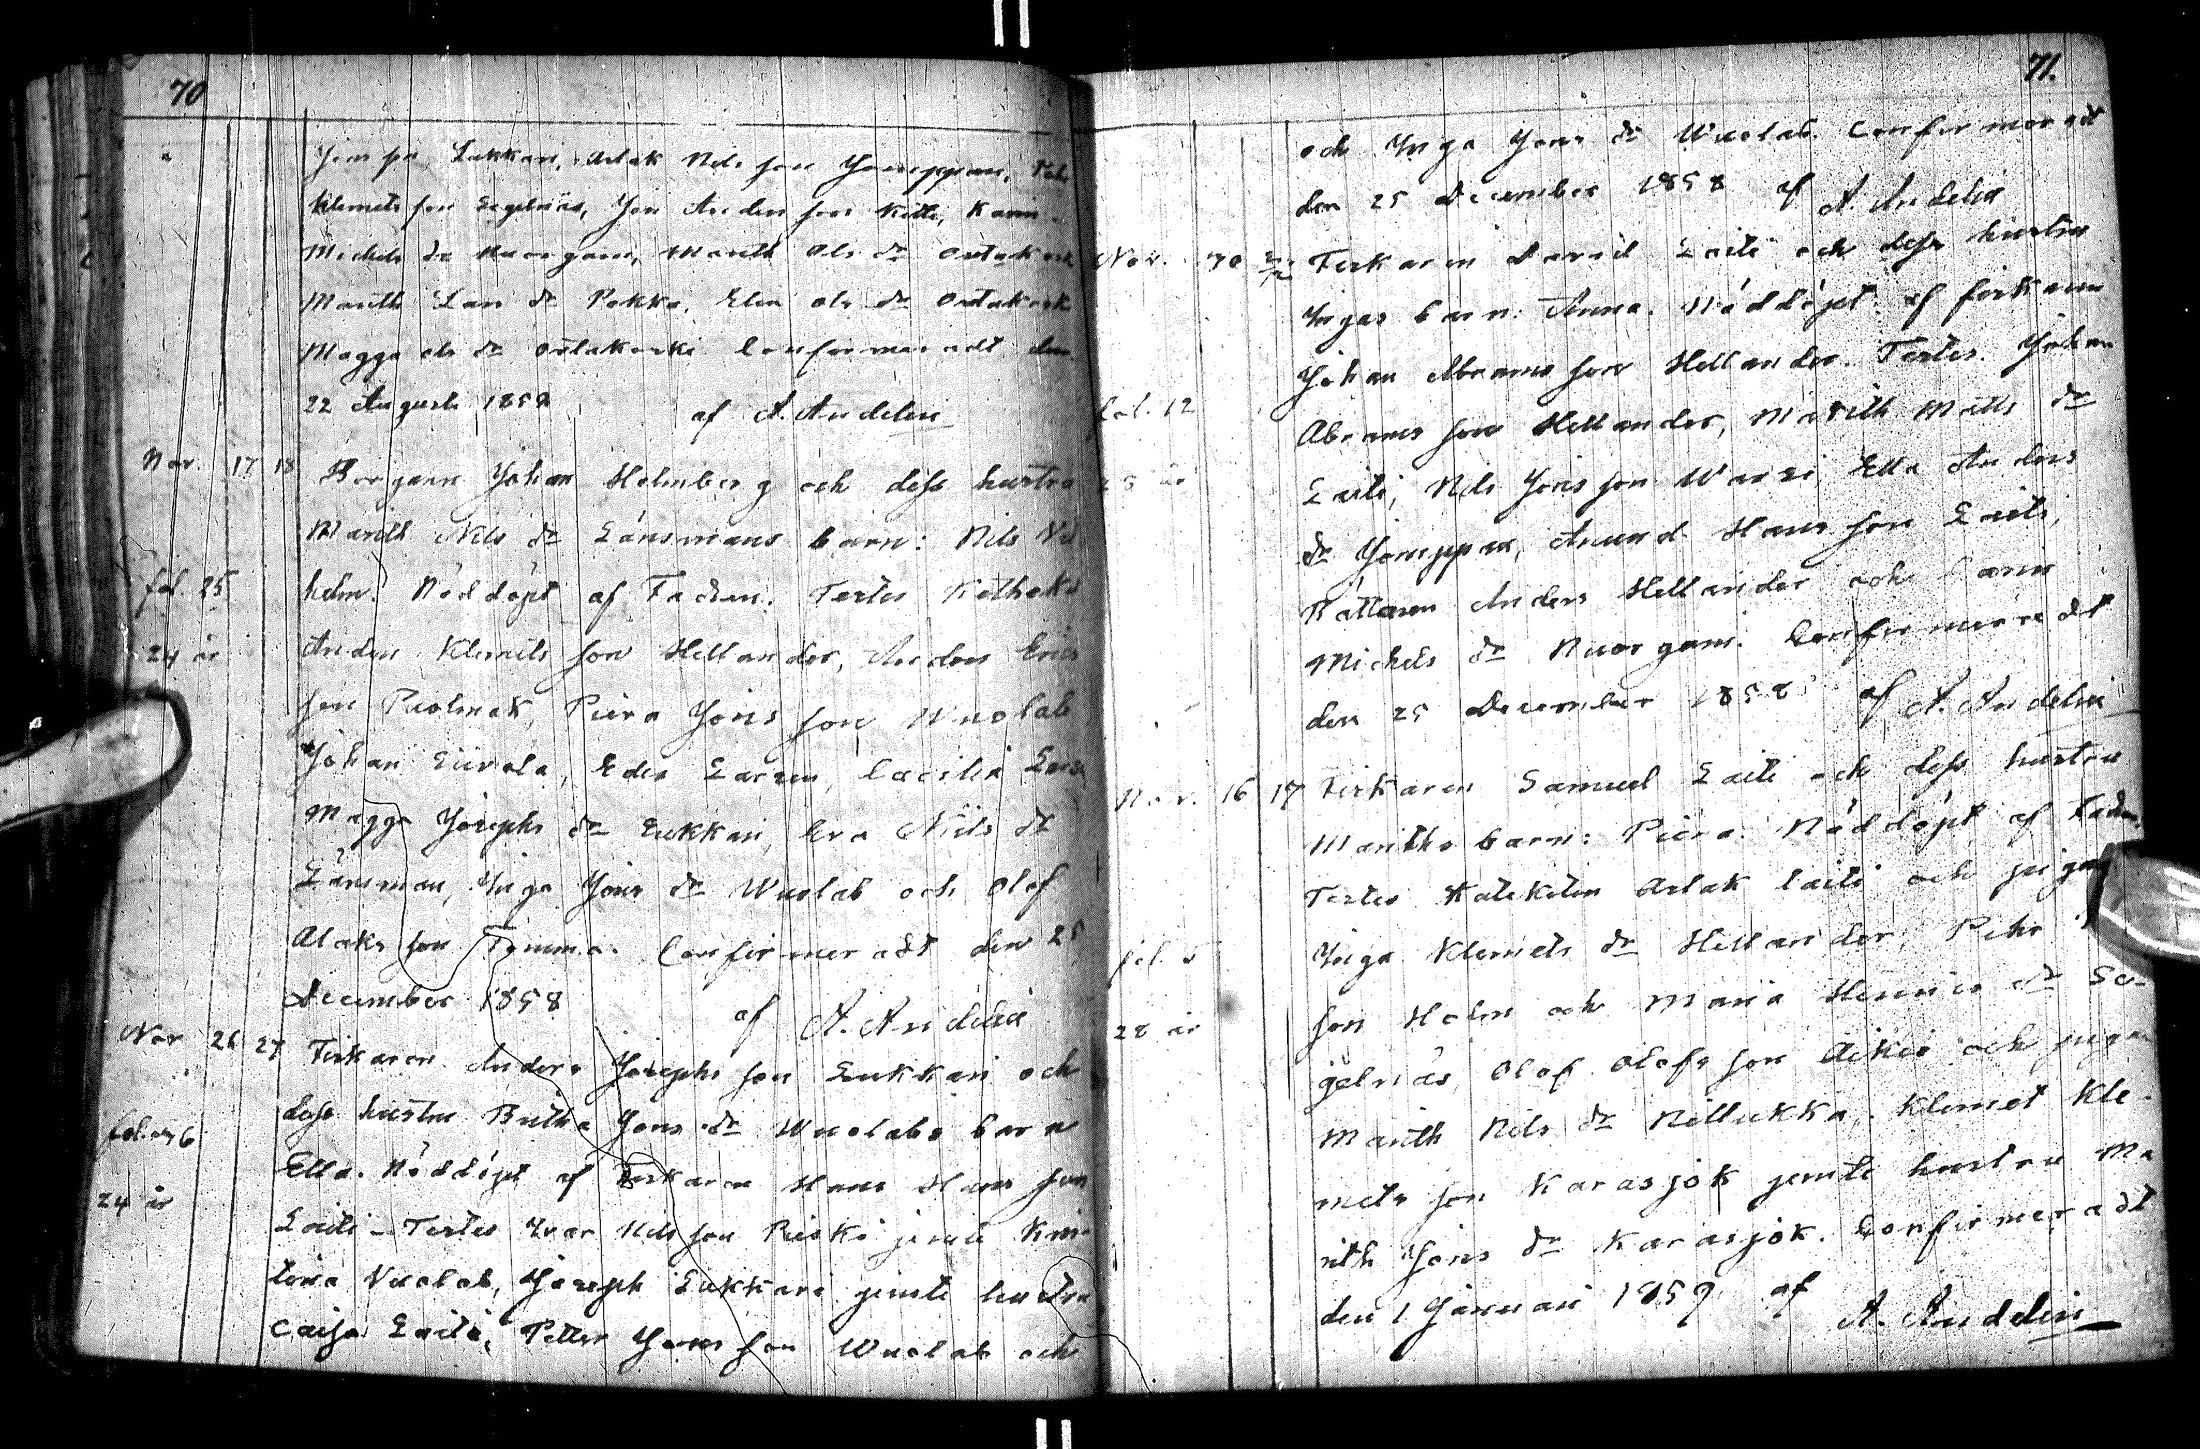 70
Jonsson Lukkari, Aslak Nils son Jomppan,
Klemets son Sagelnäs, Jon Anders son Kitti, Karin
Michels dr Nuorgam, Marith Ols dr Outakoski
Marith Lars dr Pokka, Elin Ols dr Outakoski
Magga Ols dr Outakoski Confirmeradt den
22 Augusti 1858 af A. Andelin
Nov. 17 18 Borgaren Johan Holmberg och dess hustru
Marith Nils dr Länsmans barn: Nils Vil
fol. 25 helm. Nöddöpt af Fadren. Testes Katheket
24 år Anders Klemets son Hellander, Anders Erics
son Puolmak, Piera Jons son Wuolab
Johan Eurola, Eden Larsen, Cæcilia
Magga Josephs dr Lukkari, Eva Nils dr
Länsman, Inga Jons dr Wuolab och Olof
Alaks son Tomma. Confirmeradt den 25
December 1858 af A. Andelin
Nov 26 27 Fiskaren Anders Josephs son Lukkari och
fol. 26 dess hustru Britha Jons dr Wuolabs barn
Ella. Nöddöpt af Fiskaren Hans Hans son
24 år Laiti - Testes Ivar Nils son Pieski jemte Kris-
tina Vuolab, Joseph Lukkari jemte hustru
Caisa Laiti, Petter Jons son Wuolab och
71.
och Inga Jons dr Wuolab. Confirmeradt
den 25 December 1858 af A. Andelin
Nov. 30 Fiskaren Daniel Laiti och dess hustru
Ingas barn: Anna. Nöddöpt af fiskaren
Johan Abrams son Hellander. Testes. Johan
fol. 12 Abrams son Hellander, Marith Matts dr
år Laiti, Nils Jons son Warsi, Ella Anders
dr Jomppan, Amund Hans son Laiti,
Rättaren Anders Hellander och Carin
Michels dr Nuorgam. Confirmeradt
den 25 December 1858 af A. Andelin
Nov. 16 17 Fiskaren Samuel Laiti och dess hustru
Mariths barn: Piera. Nöddöpt af Fadren.
Testes Kateketen Aslak Laiti och pigan
fol. 5 Inga Klemets dr Hellander, Pehr
son Holm och Maria Henrics dr Sa-
28 år gelnäs, Olof Olofs son Aikio och pigan
Marith Nils dr Nillukka, Klemet Kle-
mets son Karasjok jemte hustru Ma
rith Jons dr Karasjok. Confirmeradt
den 1 Januari 1859 af A. Andelin